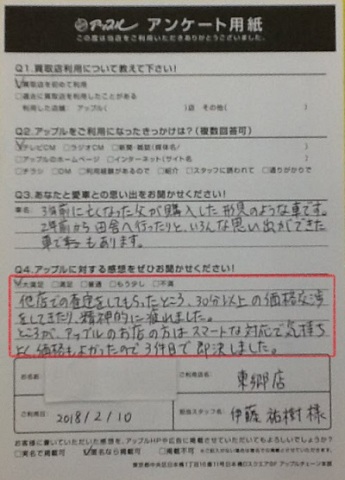 アップル アンケート用紙
この度は当店をご利用いただきありがとうございました。
Q1.買取店利用について教えて下さい!
☑買取店を初めて利用
□過去に買取店を利用したことがある
利用した店舗 アップル( )店 その他( )
Q2.アップルをご利用になったきっかけは?(複数回答可)
☑テレビCM □ラジオCM □新聞・雑誌(媒体名 )
□アップルのホームページ □インターネット(サイト名 )
□チラシ □DM □利用経験があるので □紹介 □スタッフに誘われて □通りがかりで
Q3.あなたと愛車との思い出をお聞かせください!
車名
3年前に亡くなった父が購入した形見のような車です。
2年前から田舎へ行ったりと、いろんな思い出ができた
車でもあります。
Q4.アップルに対する感想をぜひお聞かせください!
☑大満足 □満足 □普通 □もう少し □不満
他店での査定をしてもらったところ、30分以上の価格交渉
をしてきたり、精神的に疲れました。
ところが、アップルのお店の方はスマートな対応で気持ち
よく、価格もよかったので3件目で即決しました。
お名前
ご利用店名
東郷店
ご利用日
2018/2/10
担当スタッフ名
伊藤祐樹 様
お客様に書いていただいた感想を、アップルHPや広告に掲載させていただいてもよろしいでしょうか?
□実名で掲載可 ☑匿名なら掲載可 □掲載不可
東京都中央区日本橋1丁目 アップルチェーン本部